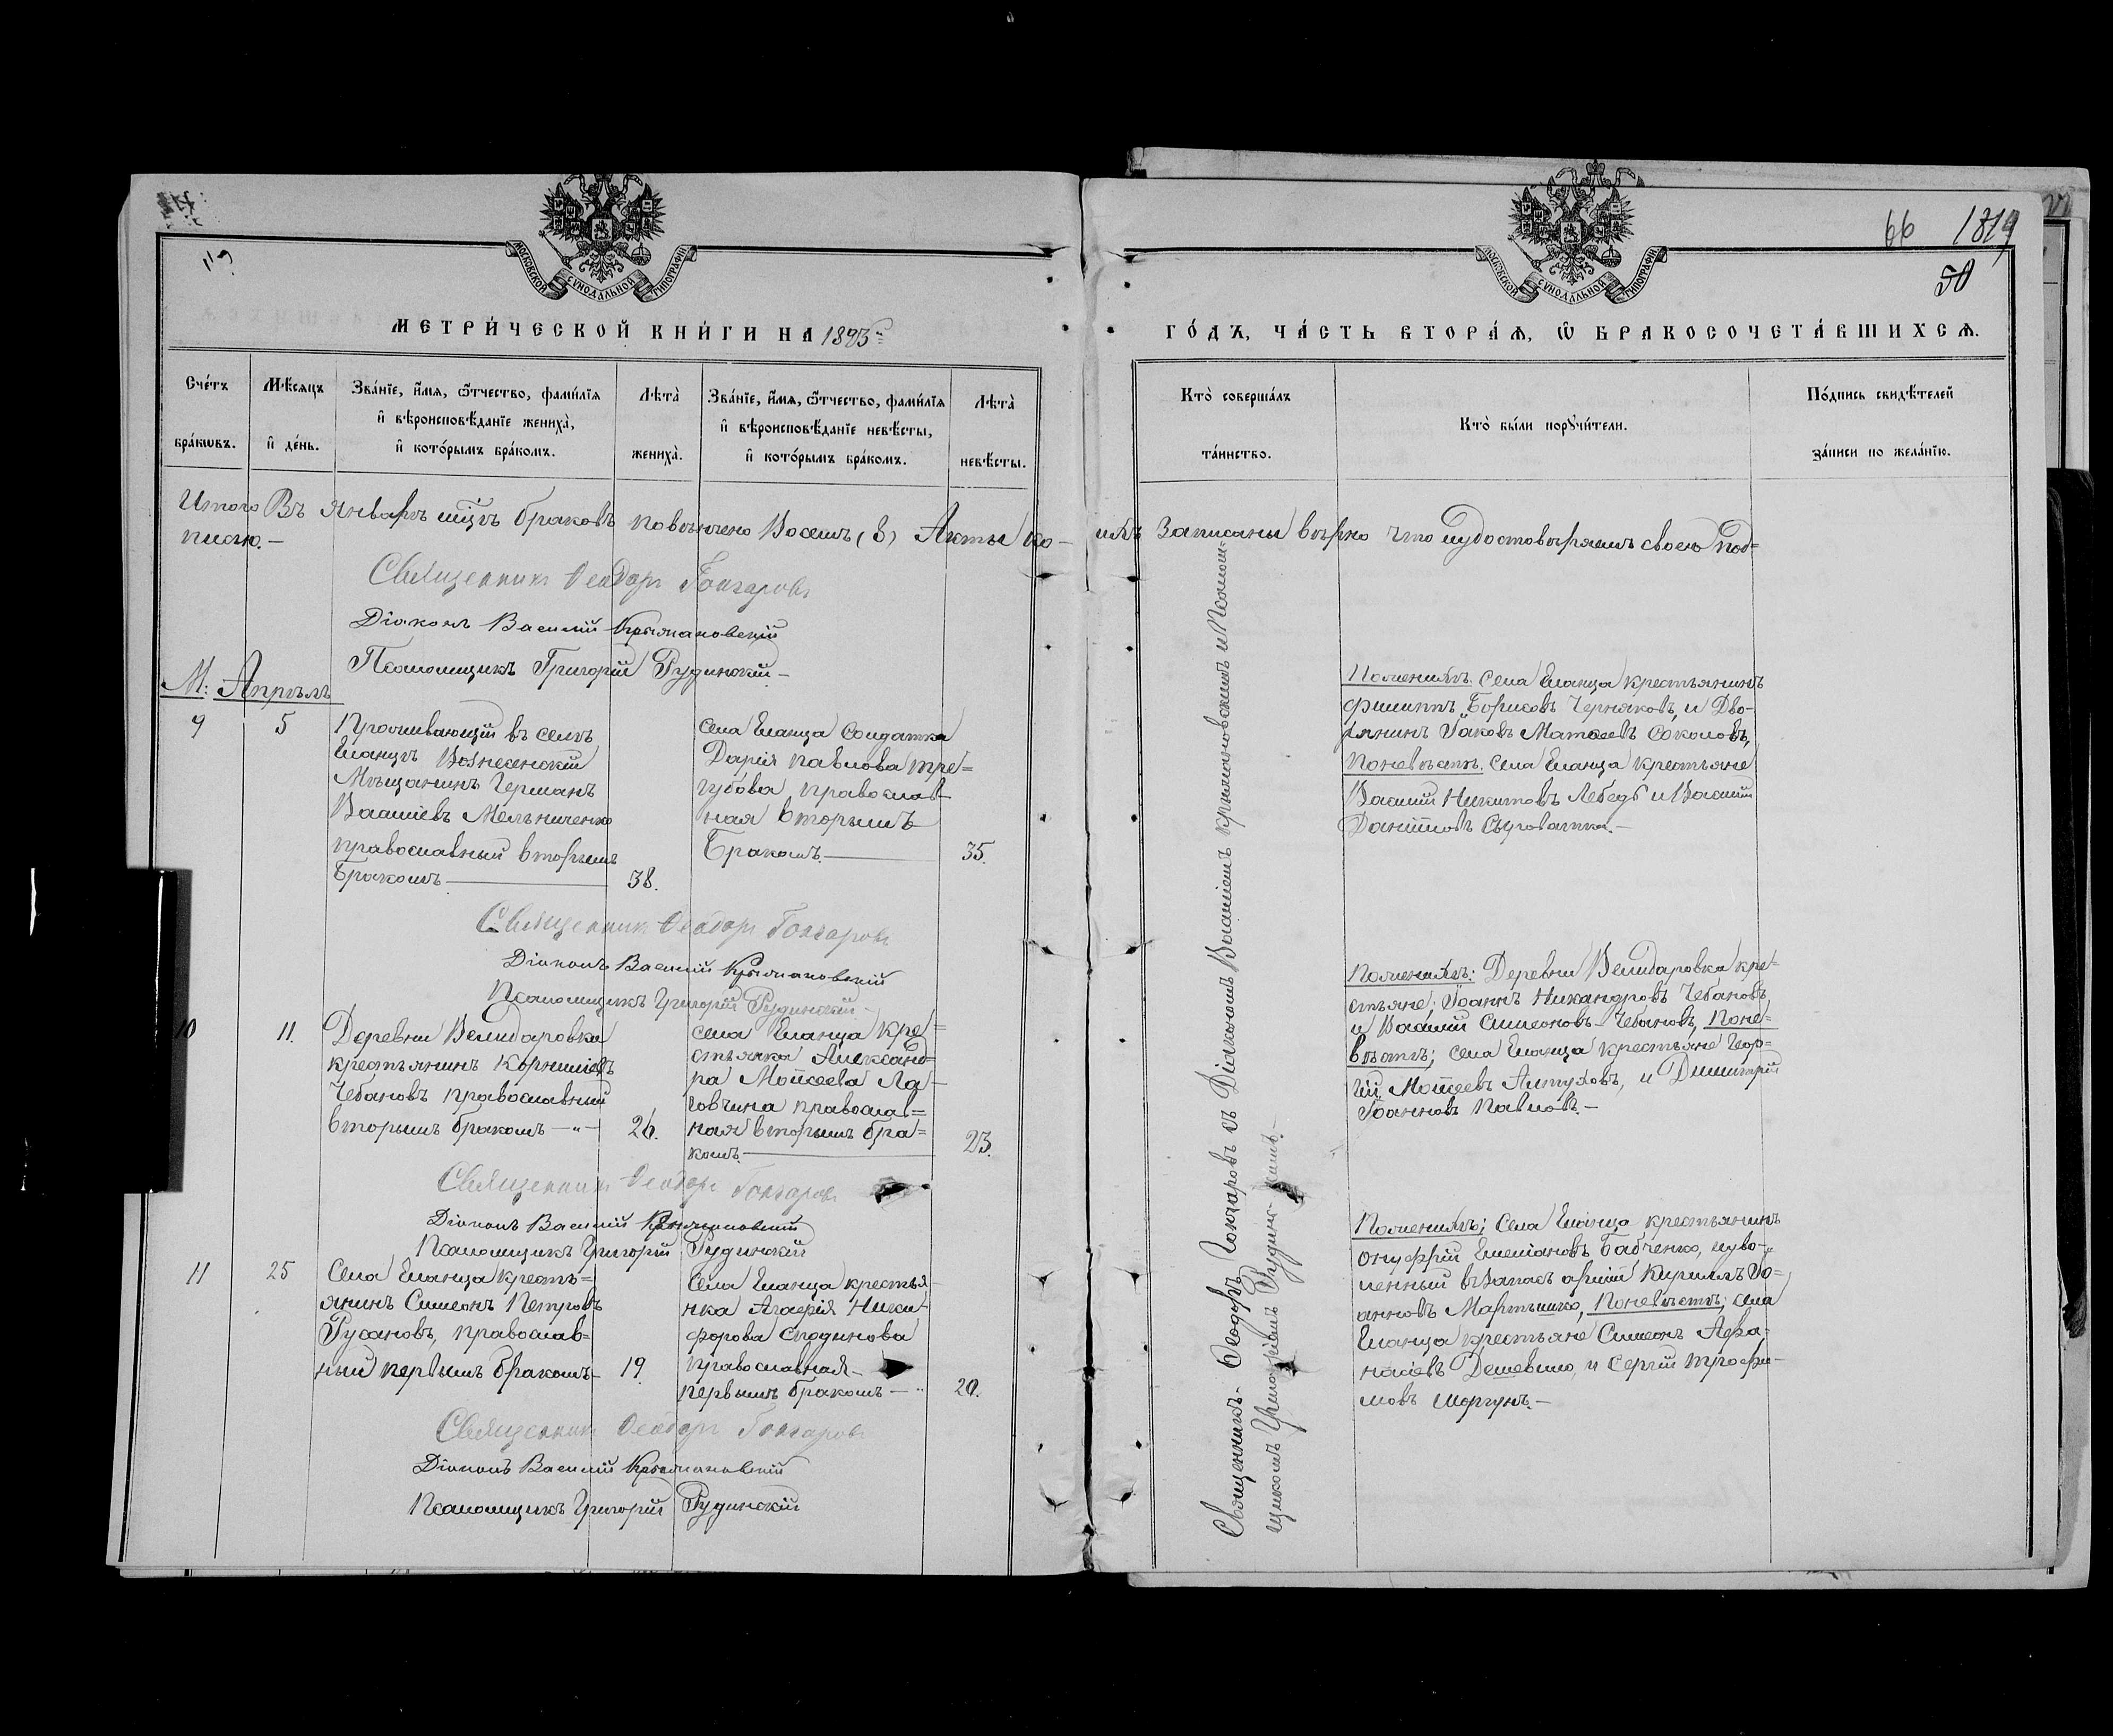 МОСКОВСКОЙ СѴНОДАЛЬНОЙ ТИПОГРАФІИ
МОСКОВСКОЙ СѴНОДАЛЬНОЙ ТИПОГРАФІИ
66 1819
50
МЕТРИ́ЧЕСКОЙ КНИ́ГИ НА 1895
ГО́ДЪ, ЧА́СТЬ ВТОРА́Я, Ѡ БРАКОСОЧЕТА́ВШИХСѦ.
Сче́тъ бра́кѡвъ.
Мѣ́сѧцъ и҆ де́нь.
Зва́нїе, и҆́мѧ, ѻ҆́тчество, фами́лїѧ
и҆ вѣроисповѣ́данїе жениха̀,
и҆ кото́рымъ бра́комъ.
Лѣта̀ жениха̀.
Зва́нїе, и҆́мѧ, ѻ҆́тчество, фами́лїѧ
и҆ вѣроисповѣ́данїе невѣ́сты,
и҆ кото́рымъ бра́комъ.
Лѣта̀ невѣ́сты.
Кто̀ соверша́лъ
та́инство.
Кто̀ бы́ли порꙋчи́тели.
По́дпись свидѣ́телей
за́писи по жела́нїю.
Итого Въ январѣ мцѣ браковъ повѣнчено Восемъ (8) Акты ко- ихъ Записаны вѣрно что и удостовѣряемъ своею Под=
писью.-
Священникъ Феодоръ Гончаровъ
Діаконъ Василій Крыжановскій
Псаломщикъ Григорій Рудинскій -
М: Апрѣль
9
5
Проживающій въ селѣ
Еланцѣ Вознесенскій
Мѣщанинъ Германъ
Василіевъ Мельниченко
православный вторымъ
Бракомъ
38.
села Еланца Солдатка
Дарія Павлова тре=
губова, православ-
ная вторымъ
Бракомъ.
35.
Поженихѣ: села Еланца крестьянинъ
Филиппъ Борисовъ Черняковъ, и Дво-
рянинъ Іаковъ Матѳеевъ Соколовъ,
Поневѣстѣ: села Еланца крестьяне
Василій Никитовъ Лебедь и Василій
Даніиловъ Сыроватка.-
Священникъ Феодоръ Гончаровъ
Діаконъ Василій Крыжановскій
Псаломщикъ Григорій Рудинскій -
10
11.
Деревни Велидаровка
крестьянинъ Корнилій
Чебановъ православный
вторымъ бракомъ — " —
26.
села Еланца кре=
стьянка Александ=
ра Моисеева Ла-
говчина православ=
ная вторымъ бра=
комъ.
23.
Поженихѣ: Деревни Велидаровка кре-
стьяне; Іоаннъ Никандровъ Чебановъ,
и Василій Симеоновъ Чебановъ, Поне=
вѣстѣ; села Еланца крестьяне Геор=
гій Моисеевъ Алтуховъ, и Димитрій
Іоанновъ Павловъ.-
Священникъ Феодоръ Гончаровъ
Діаконъ Василій Крыжановскій
Псаломщикъ Григорій Рудинскій
11
25
Села Еланца кресть=
янинъ Симеонъ Петровъ
Русановъ, православ=
ный первымъ бракомъ-
19.
села Еланца крестья-
нка Агафія Ники-
форова Сподинова
православная-
первымъ бракомъ — "
20.
Поженихѣ; села Еланца крестьянинъ
онуфрій Емеліановъ Бабченко, и уво-
ленный въ запасъ арміи Кириллъ Іо=
анновъ Мартынко, Поневѣстѣ; села
Еланца крестьяне Симеонъ Афа-
насіевъ Дешевило, и Сергій Трофи-
мовъ Моргунъ.-
Священникъ Феодоръ Гончаровъ
Діаконъ Василій Крыжановскій
Псаломщикъ Григорій Рудинскій
Священникъ Феодоръ Гончаровъ съ Діакономъ Василіемъ Крыжановскимъ и Псалом-
щикомъ Григоріемъ Рудинскимъ.-